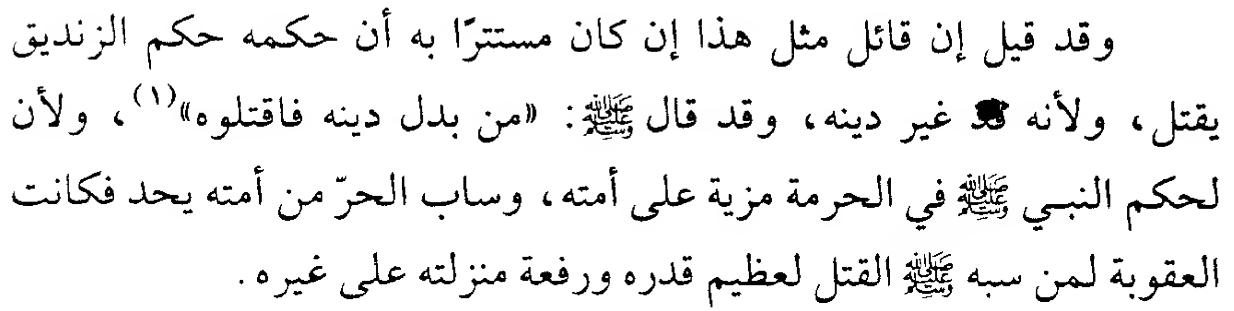 وقد قيل إن قائل مثل هذا إن كان مستترًا به أن حكمه حكم الزنديق
يقتل، ولأنه قد غير دينه، وقد قال ﷺ: «من بدل دينه فاقتلوه»(١)، ولأن
لحكم النبي ﷺ في الحرمة مزية على أمته، وساب الحرّ من أمته يحد فكانت
العقوبة لمن سبه ﷺ القتل لعظيم قدره ورفعة منزلته على غيره.